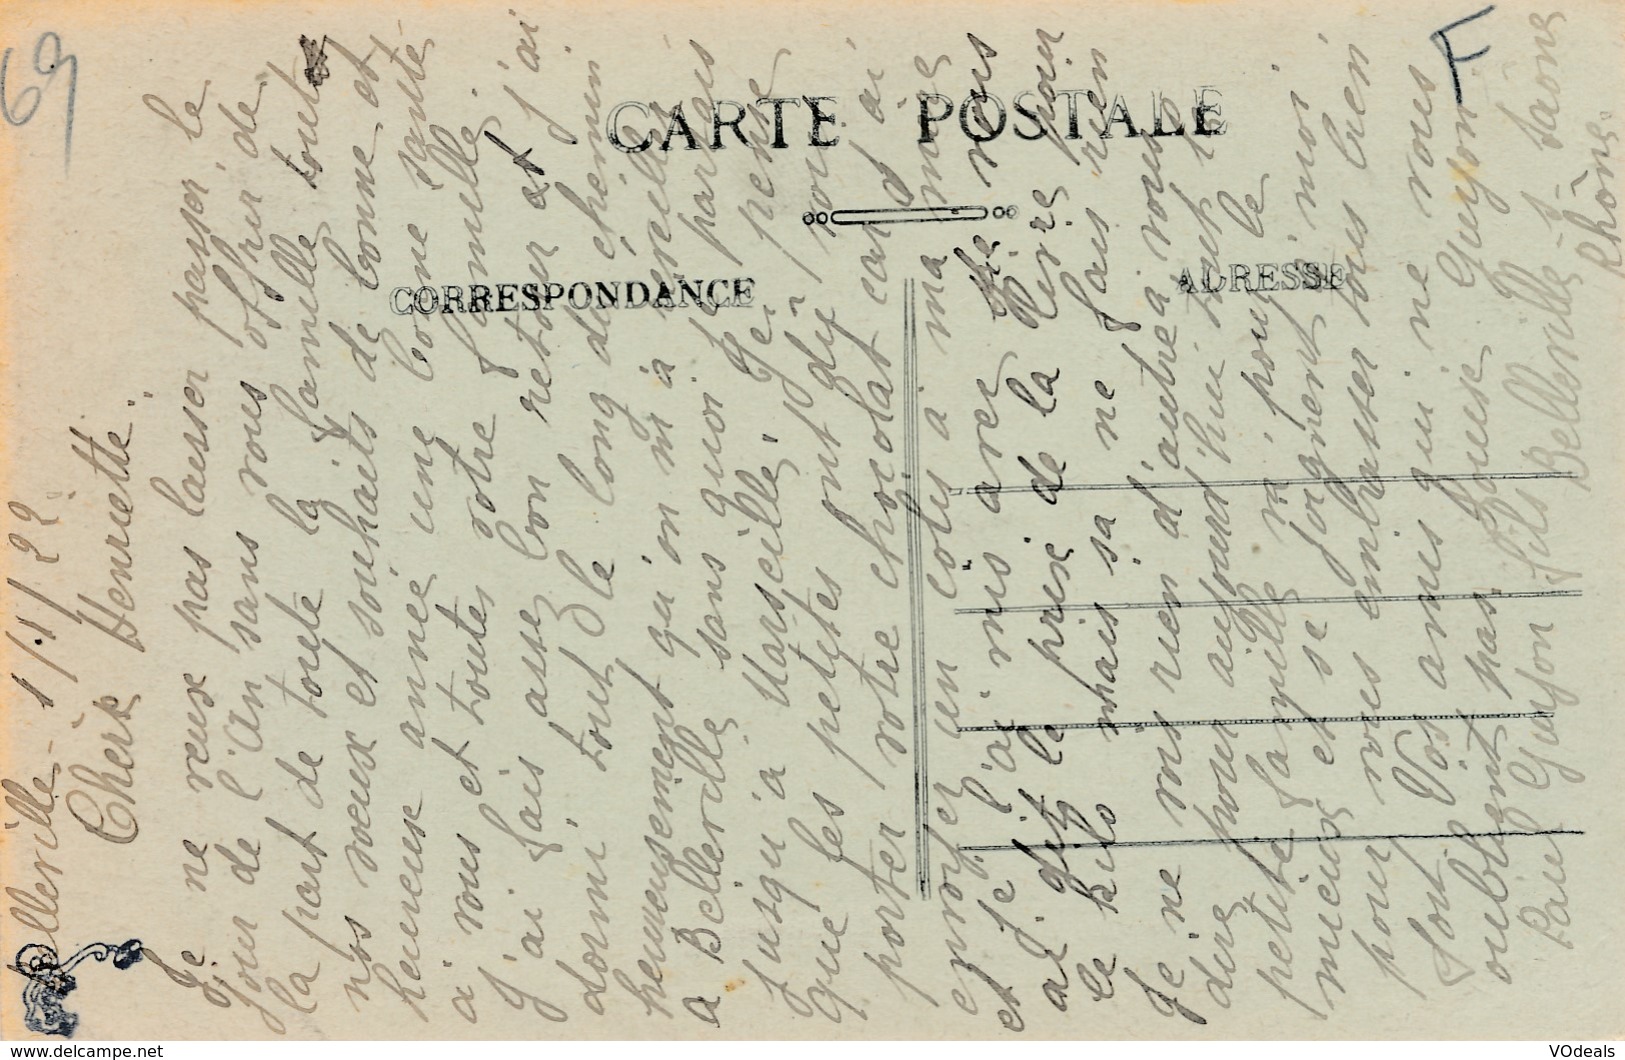 69
F
CARTE POSTALE
CORRESPONDANCE
ADRESSE
Belleville 1/1/22
Cherk Henriette
Je ne veux pas laisser passer le
jour de l'an sans vous offrir de
la part de toute la famille toute
nos voeux et souhaits de bonne et
heureuse année une bonne santé
a vous et toutes votre famille
J'ai fais assez bon retour et j'ai
dormi tout le long du chemin
heureusement qu'on m'a réveillé
a Belleville sans quoi je partais
jusqu'a Marseille, Je pense
que les petites ont du vous
porter votre chocolat car j'ai
envoyer un colis a ma mère
et je l'ai mis avec
ai dit le prix de la pour
le kilo mais sa ne fais rien
Je ne vois rien d'autre a vous
dire pour aujourd'hui tout le
petite famille pour le
mieux et se joignent a moi
pour vous embrasser tous bien
fort Vos amis qui ne vous
oublient pas Louise Guyon
Paul Guyon fils Belleville s/ saone
Rhône
www.delcampe.net
VOdeals